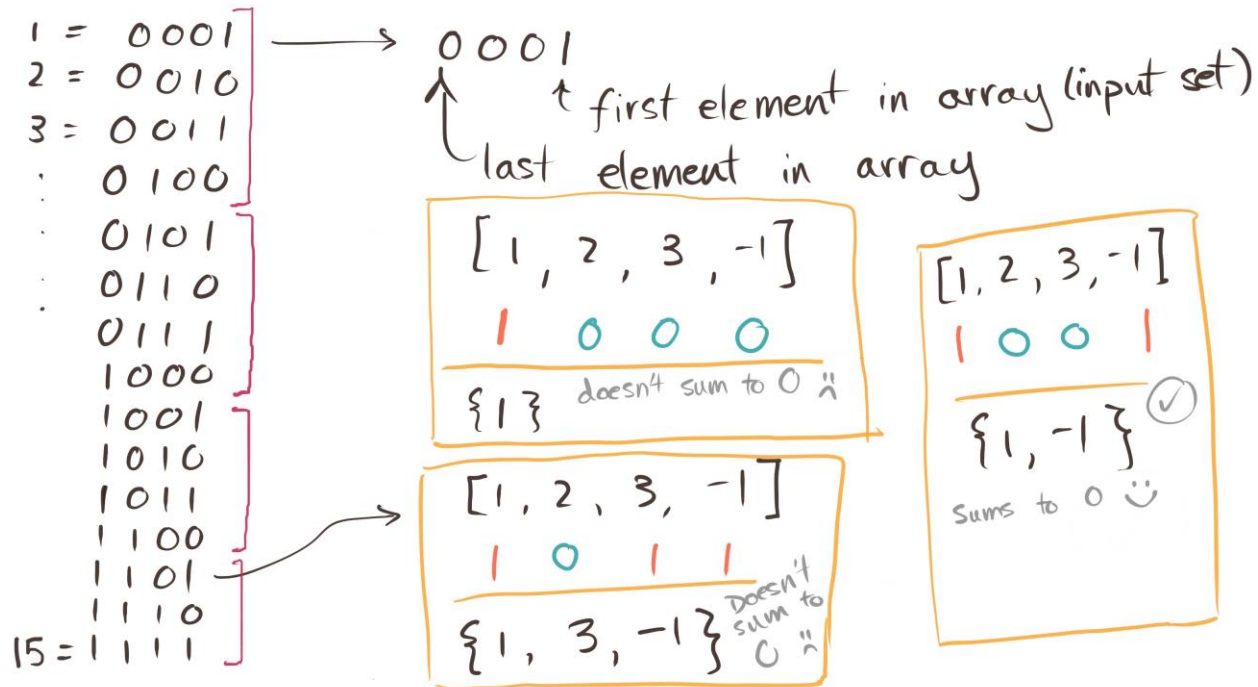 1 = 0001
2 = 0010
3 = 0011
: 0100
. 0101
. 0110
. 0111
1000
1001
1010
1011
1100
1101
1110
15 = 1111
0001
first element in array (input set)
last element in array
[1, 2, 3, -1]
1 0 0 0
{1} doesn't sum to 0 :(
[1, 2, 3, -1]
1 0 1 1
{1, 3, -1} Doesn't
sum to
0 :(
[1, 2, 3, -1]
1 0 0 1
{1, -1} ✓
sums to 0 :)